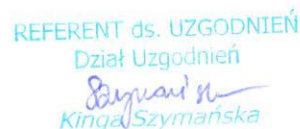 REFERENT ds. UZGODNIEŃ
Dział Uzgodnień
Kinga Szymańska